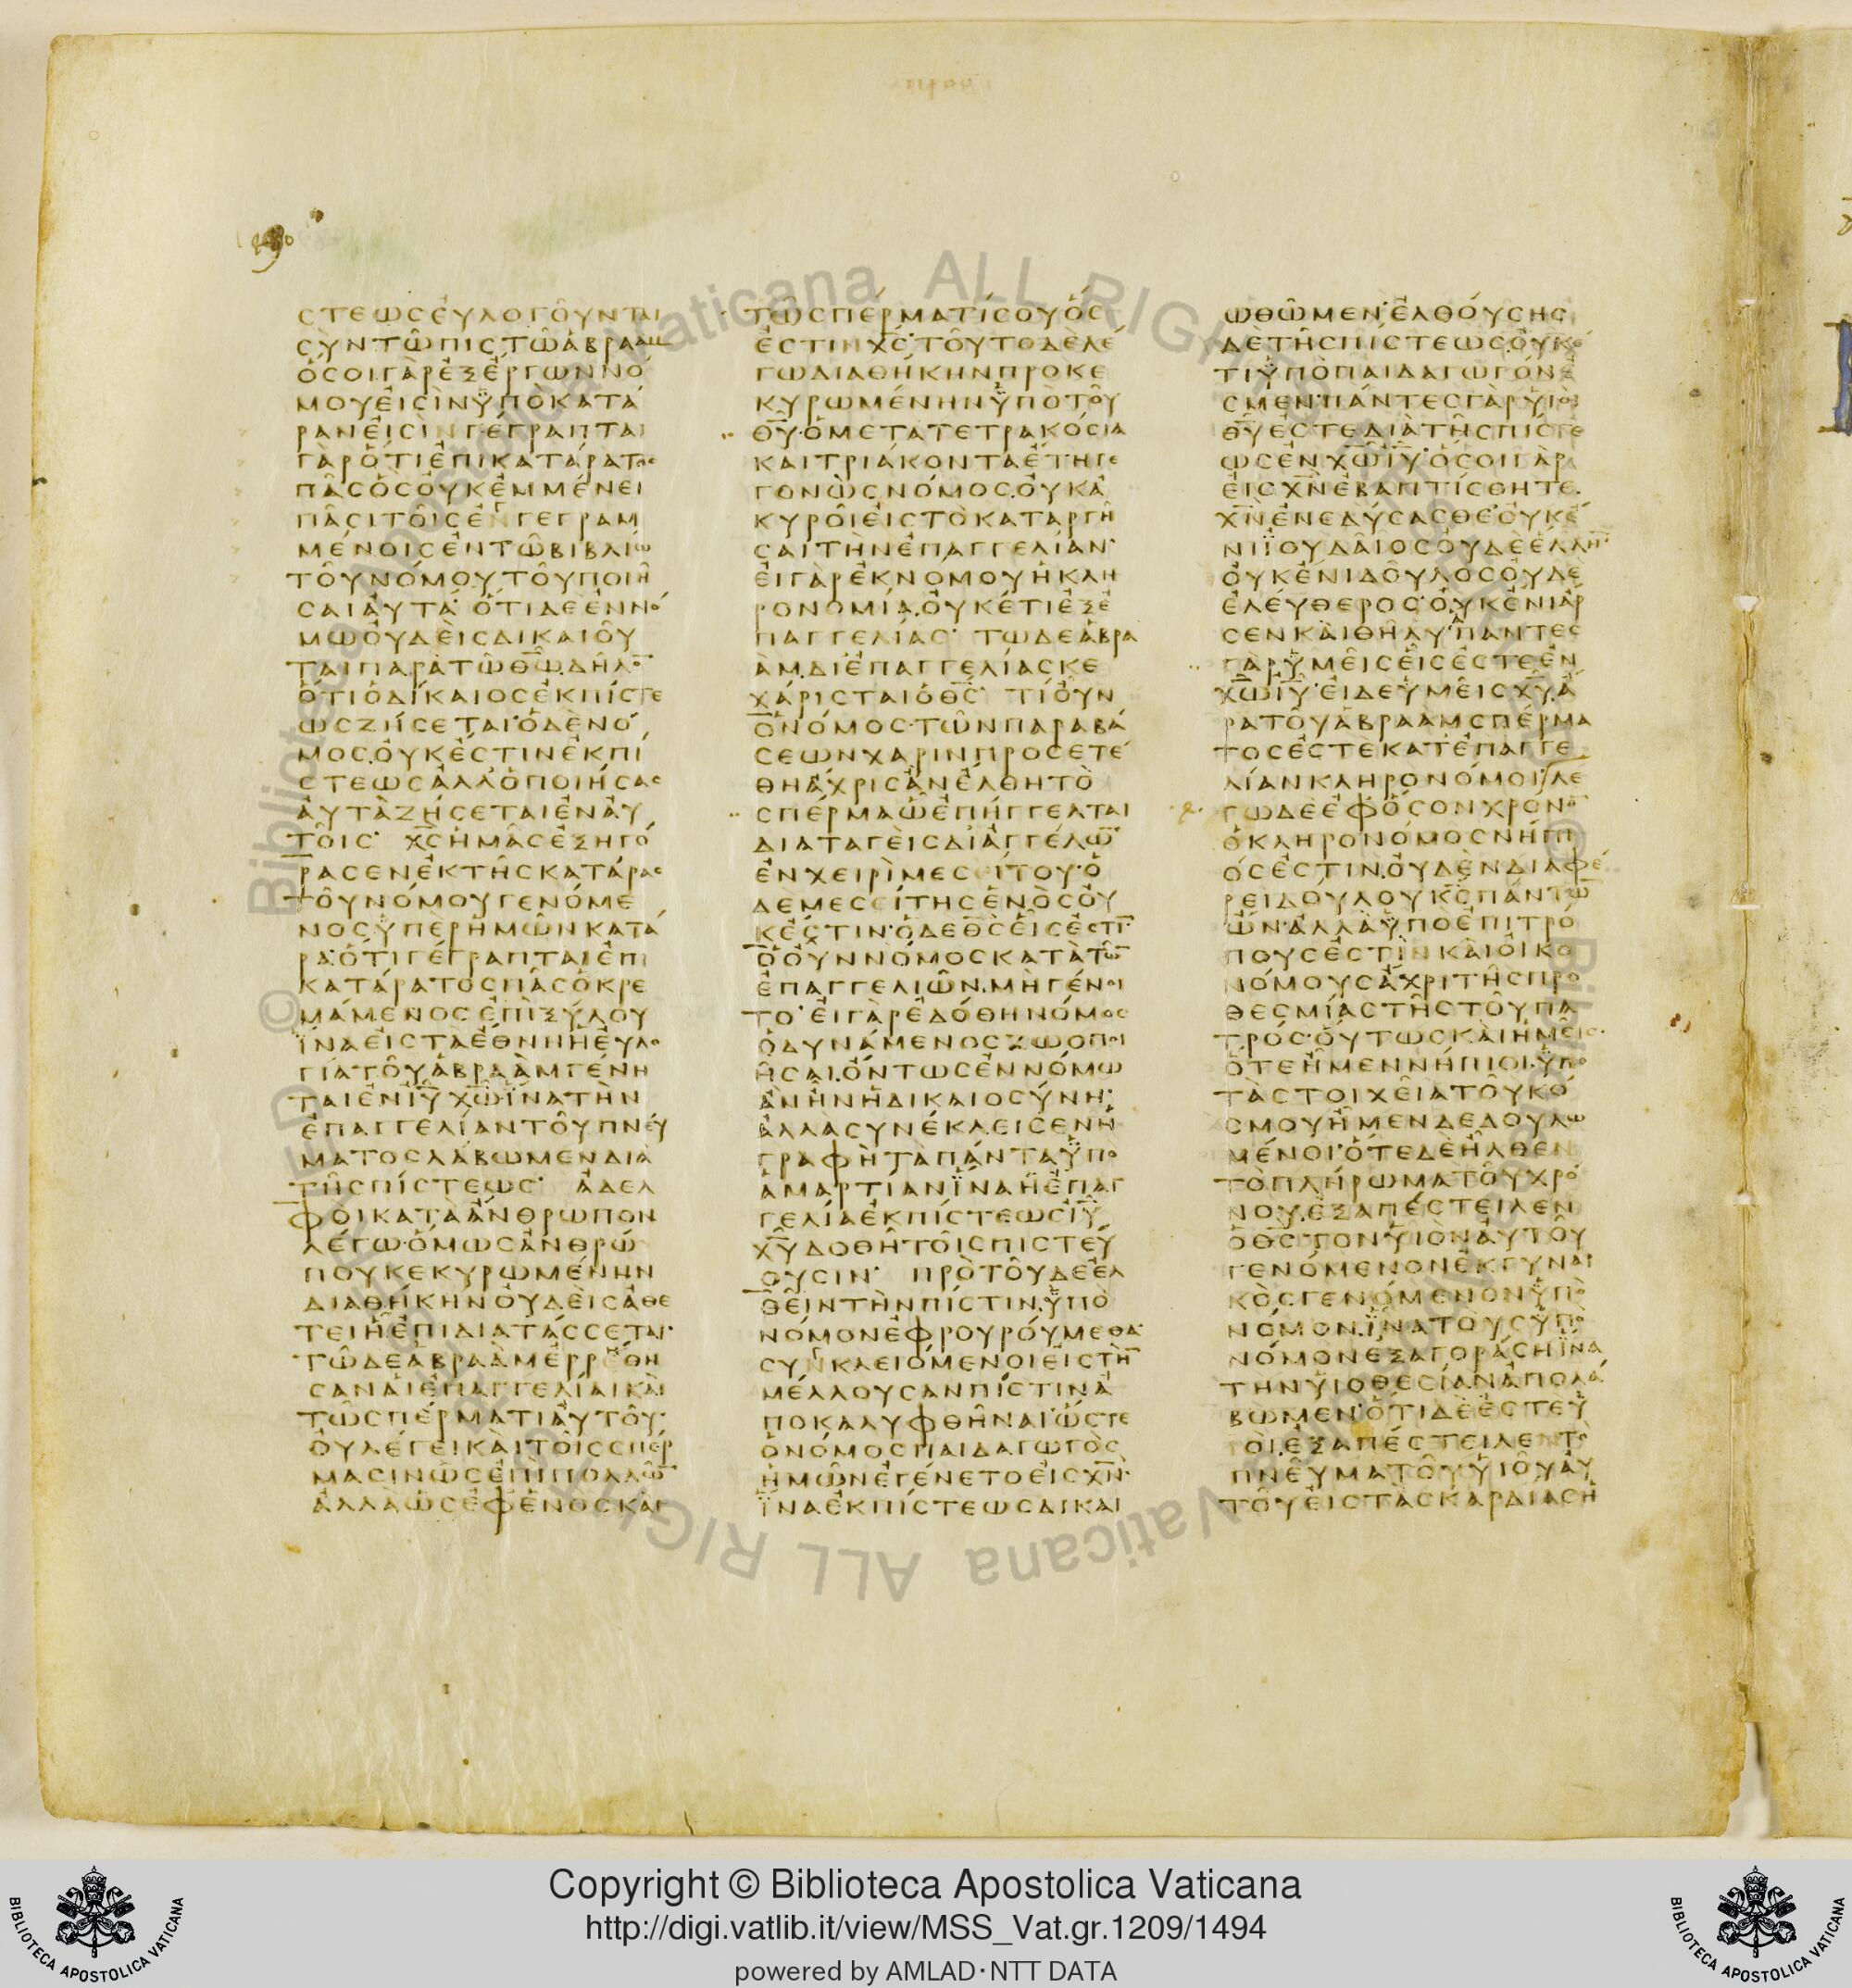 ϲτεωϲ εὐλογοῦνται
ϲὺν τῶ πιϲτῶ ἀβρααμ
ὅϲοι γὰρ ἐξ ἔργων νό
μου εἰϲὶν ὑπὸ κατά
ραν εἰϲιν γέγραπται
γαρ ὅτι ἐπικατάρατοϲ
πᾶϲ ὃϲ οὐκ ἐμμένει
πᾶϲι τοῖϲ ἐνγεγραμ
μένοιϲ ἐν τῶ βιβλίω
τοῦ νόμου τοῦ ποιῆ
ϲαι αὐτά· ὅτι δε ἐν νό
μω οὐδεὶϲ δικαιοῦ
ται παρὰ τῶ θ̅ω̅ δῆλο̅
ὅτι ὁ δίκαιοϲ ἐκ πίϲτε
ωϲ ζήϲεται· ὁ δὲ νό
μοϲ οὐκ ἔϲτιν ἐκ πί
ϲτεωϲ ἀλλ ὁ ποιήϲαϲ
ἀυτὰ ζήϲεται ἐν ἀυ
τοῖϲ· χ̅ϲ̅ ἡμᾶϲ ἐξηγό
ραϲεν ἐκ τῆϲ κατάραϲ
τοῦ νόμου γενόμε
νοϲ ὑπὲρ ἡμῶν κατά
ρα· ὅτι γέγραπται ἐπι
κατάρατοϲ πᾶϲ ὁ κρε
μάμενοϲ ἐπὶ ξύλου
ἵνα εἰϲ τὰ ἔθνη ἡ ἐυλο
γία τοῦ ἀβραὰμ γένη
ται ἐν ι̅υ̅ χ̅ω̅· ἵνα τὴν
ἐπαγγελίαν τοῦ πνεύ
ματοϲ λάβωμεν διὰ
τῆϲ πίϲτεωϲ· ἀδελ
φοι κατὰ ἄνθρωπον
λέγω· ὅμωϲ ἀνθρώ
που κεκυρωμένην
διαθήκην οὐδεὶϲ ἀθε
τεῖ ἢ ἐπιδιατάϲϲεται·
τῶ δε ἀβραὰμ ἐρρέθη
ϲαν αἱ ἐπαγγελίαι καὶ
τῶ ϲπέρματι ἀυτοῦ·
οὐ λέγει καὶ τοῖϲ ϲπέρ
μαϲιν ὡϲ ἐπὶ πολλῶ̅
ἀλλὰ ὡϲ ἐφ ἑνὸϲ και
τῶ ϲπέρματί ϲου ὅϲ
ἐϲτιν χ̅ϲ̅· τοῦτο δὲ λέ
γω διαθήκην προκε
κυρωμένην ὑπὸ τοῦ
θ̅υ̅· ὁ μετα τετρακόϲια
και τριάκοντα ἔτη γε
γονὼϲ νόμοϲ οὐκ ἀ
κυροῖ εἰϲ τὸ καταργῆ
ϲαι τὴν ἐπαγγελίαν·
εἰ γὰρ ἐκ νόμου ἡ κλη
ρονομία οὐκέτι ἐξ ἐ
παγγελίαϲ· τω δε ἀβρα
ὰμ δι ἐπαγγελίαϲ κε
χάριϲται ὁ θ̅ϲ̅· τί οὖν
ὁ νόμοϲ· τῶν παραβά
ϲεων χάριν προϲετέ
θη ἄχριϲ ἂν ἔλθη τὸ
ϲπέρμα ὧ ἐπήγγελται
διαταγεὶϲ δι ἀγγέλω̅
ἐν χειρὶ μεϲείτου· ὁ
δε μεϲείτηϲ ἑνὸϲ οὐ
κ ἔϲτιν· ὁ δε θ̅ϲ̅ εἷϲ ἐϲτι̅·
ὁ οὖν νόμοϲ κατὰ τῶ̅
ἐπαγγελιῶν μὴ γένοι
το· εἰ γὰρ ἐδόθη νόμοϲ
ὁ δυνάμενοϲ ζωοποι
ῆϲαι ὄντωϲ ἐν νόμω
ἂν ἦν ἡ δικαιοϲύνη·
ἀλλα ϲυνέκλειϲεν ἡ
γραφὴ τὰ πάντα ὑπο
ἁμαρτίαν ἵνα ἡ ἐπαγ
γελία ἐκ πίϲτεωϲ ι̅υ̅
χ̅υ̅ δοθῆ τοῖϲ πιϲτεύ
ουϲιν· πρὸ τοῦ δε ἐλ
θεῖν τὴν πίϲτιν ὑπὸ
νόμον ἐφρουρούμεθα·
ϲυνκλειόμενοι εἰϲ τὴ̅
μέλλουϲαν πίϲτιν ἀ
ποκαλυφθῆναι· ὥϲτε
ὁ νόμοϲ παιδαγωγὸϲ
ἡμῶν ἐγένετο εἰϲ χ̅ν̅·
ἵνα ἐκ πίϲτεωϲ δικαι
ωθῶμεν· ἐλθούϲηϲ
δὲ τῆϲ πίϲτεωϲ οὐκέ
τι ὑπὸ παιδαγωγόν ἐ
ϲμεν· πάντεϲ γὰρ υἱοὶ
θ̅υ̅ ἐϲτε διὰ τῆϲ πίϲτε
ωϲ ἐν χ̅ω̅ ι̅υ̅· ὅϲοι γὰρ
εἰϲ χ̅ν̅ ἐβαπτίϲθητε
χ̅ν̅ ἐνεδύϲαϲθε· οὐκ ἔ
νι ἰουδαῖοϲ οὐδὲ ἕλλη̅·
οὐκ ἔνι δοῦλοϲ οὐδὲ
ἐλεύθεροϲ· οὐκ ἔνι ἄρ
ϲεν καὶ θῆλυ· παντεϲ
γὰρ ὑμεῖϲ εἷϲ ἐϲτε ἐν
χ̅ω̅ ι̅υ̅· εἰ δε ὑμεῖϲ χ̅υ̅ ἄ
ρα τοῦ ἀβραὰμ ϲπέρμα
τοϲ ἐϲτὲ κατ ἐπαγγε
λίαν κληρονόμοι· λέ
γω δὲ ἐφ ὅϲον χρόνο̅
ὁ κληρονόμοϲ νήπι
όϲ ἐϲτιν οὐδὲν διαφέ
ρει δούλου κ̅ϲ̅ πάντω̅
ὤν· ἀλλὰ ὑπο ἐπιτρό
πουϲ ἐϲτὶν καὶ οἰκο
νόμουϲ ἄχρι τῆϲ προ
θεϲμίαϲ τῆϲ τοῦ πα
τρόϲ· οὕτωϲ καὶ ἡμεῖϲ·
ὅτε ἦμεν νήπιοι ὑπο
τὰ ϲτοιχεῖα τοῦ κό
ϲμου ἦμεν δεδουλω
μένοι· ὅτε δὲ ἦλθεν
τὸ πλήρωμα τοῦ χρό
νου ἐξαπέϲτειλεν
ὁ θ̅ϲ̅ τον υἱὸν ἀυτοῦ
γενόμενον ἐκ γυναι
κὸϲ γενόμενον ὑπὸ
νόμον ἵνα τοὺϲ ὑπο
νόμον ἐξαγοράϲη ἵνα
την υἱοθεϲίαν ἀπολά
βωμεν· ὅτι δὲ ἐϲτε υἱ
οὶ ἐξαπέϲτειλεν τὸ
πνεῦμα τοῦ υἱοῦ ἀυ
τοῦ εἰϲ τὰϲ καρδίαϲ ἡ
Copyright © Biblioteca Apostolica Vaticana
http://digi.vatlib.it/view/MSS_Vat.gr.1209/1494
powered by AMLAD·NTT DATA
BIBLIOTECA APOSTOLICA VATICANA
BIBLIOTECA APOSTOLICA VATICANA